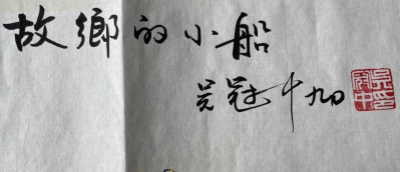 故鄉的小船
吴冠中
吴冠中印